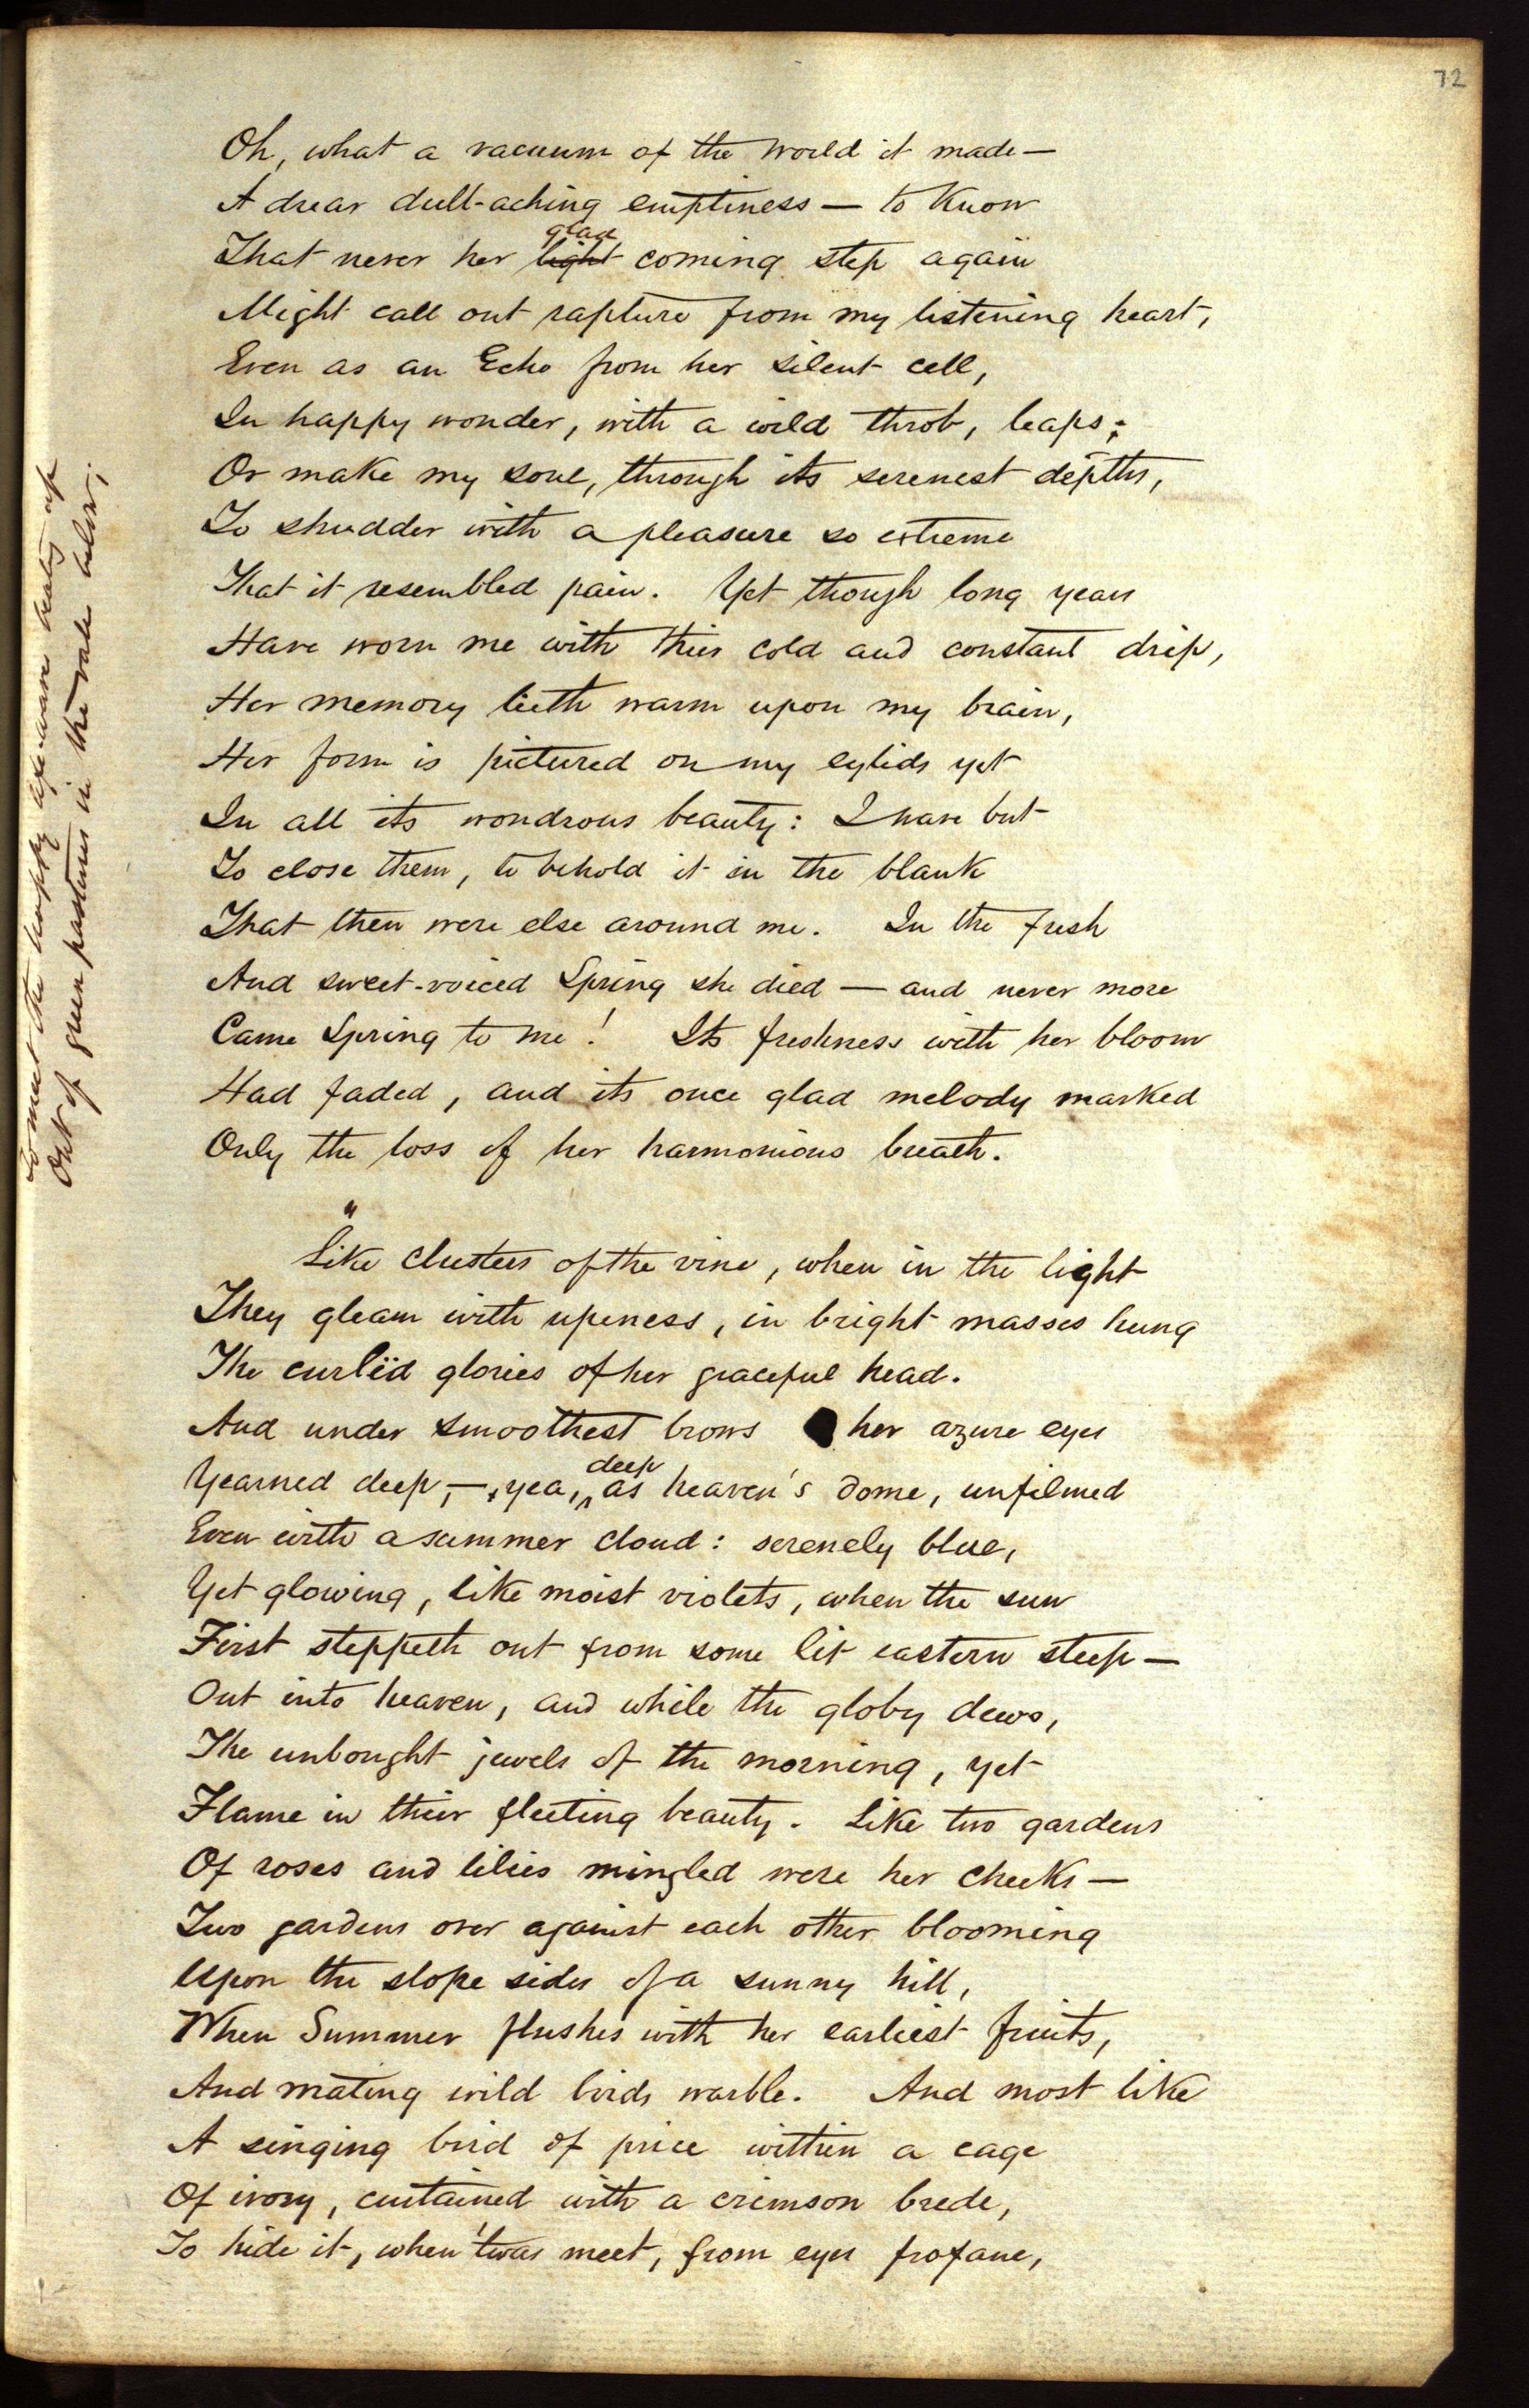 72
Oh, what a vacuum of the world it made—
A drear dull-aching emptiness — to know
glad
That never her light coming step again
Might call out rapture from my listening heart,
Even as an Echo from her silent cell,
In happy wonder, with a wild throb, leaps;
Or make my soul, through its serenest depths,
To shudder with a pleasure so extreme
That it resembled pain. Yet though long years
Have worn me with their cold and constant drip,
Her memory lieth warm upon my brain,
Her form is pictured on my eylids yet
In all its wondrous beauty: I have but
To close them, to behold it in the blank
That then were else around me. In the fresh
And sweet-voiced Spring she died — and never more
Came Spring to me! Its freshness with her bloom
Had faded, and its once glad melody marked
Only the loss of her harmonious breath.
"
Like clusters of the vine, when in the light
They gleam with ripeness, in bright masses hung
The curlëd glories of her graceful head.
And under smoothest brows her azure eyes
deep
Yearned deep,—, yea, ^ as heaven's dome, unfilmed
Even with a summer cloud: serenely blue,
Yet glowing, like moist violets, when the sun
First steppeth out from some lit eastern steep—
Out into heaven, and while the globy dews,
The unbought jewels of the morning, yet
Flame in their fleeting beauty. Like two gardens
Of roses and lilies mingled were her cheeks—
Two gardens over against each other blooming
Upon the slope sides of a sunny hill,
When Summer flushes with her earliest fruits,
And mating wild birds warble. And most like
A singing bird of price within a cage
Of ivory, curtained with a crimson brede,
To hide it, when 'twas meet, from eyes profane,
To meet the happy up
Out of green pastures in the vale below;